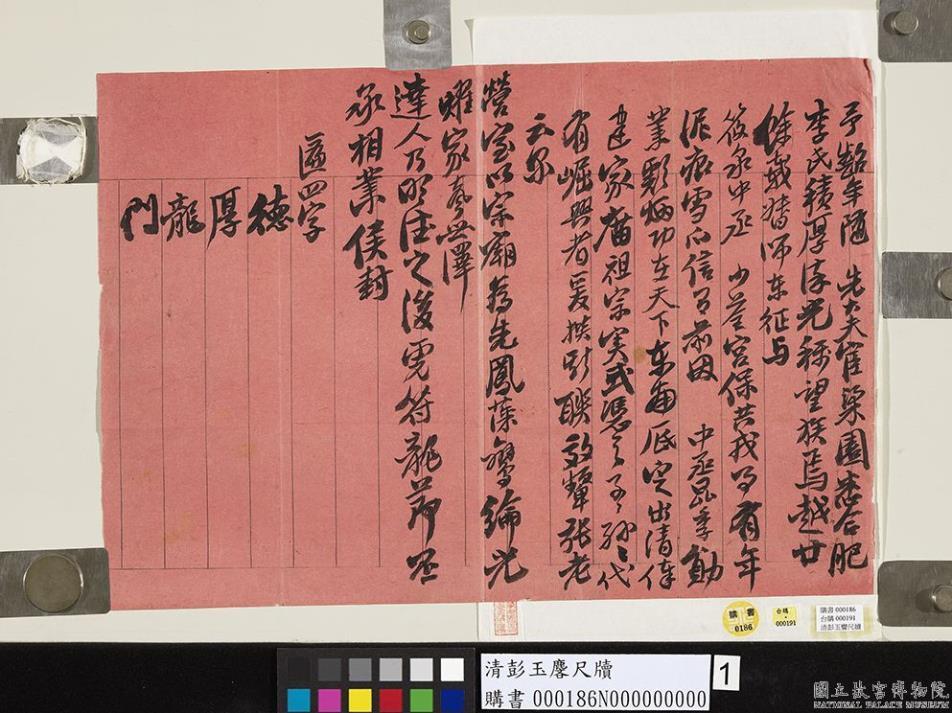 予齠年隨 先大夫宦梁園悉合肥
李氏積厚流光稱望族焉越廿
餘載督師东征与
筱泉中丞 少荃宮保共戎马有年
泥痕雪爪信有前因 中丞昆季勳
業彪炳功在天下东南底定出清俸
建家廟祖宗実式憑之子子孫孫代
有崛興者爰撰斯聯效顰張老
云尔
營室以宗廟為先鳳藻鸞綸光
耀家聲世澤
達人乃明德之後虎符龍節丕
承相業侯封
匾四字
德
厚
龍
門
購書
0186
台購
000191
購書 000186
台購 000191
清彭玉麐尺牘
清彭玉麐尺牘
購書 000186N000000000
1
國立故宮博物院
NATIONAL PALACE MUSEUM